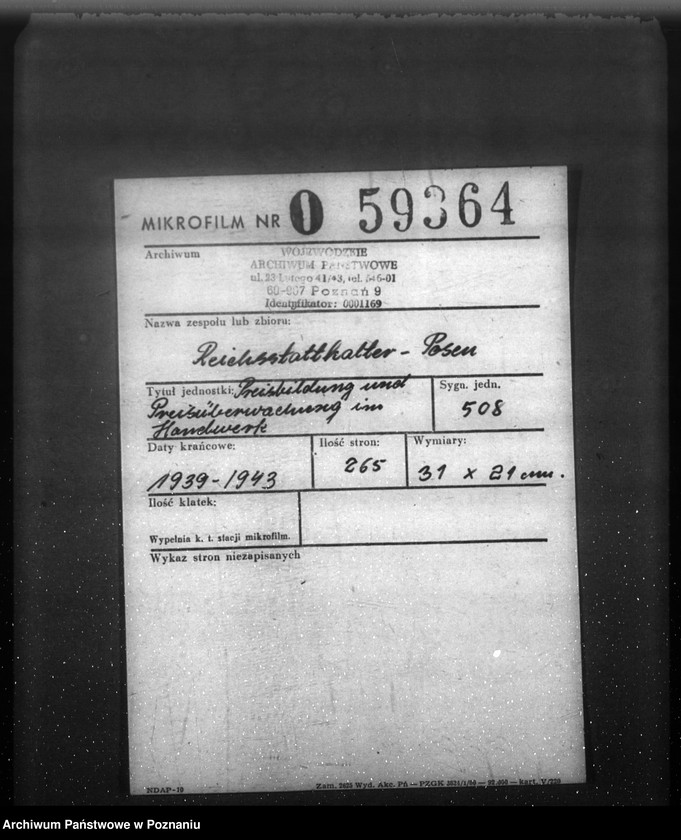 MIKROFILM NR 0 59364
Archiwum
WOJEWÓDZKIE
ARCHIWUM PAŃSTWOWE
ul. 23 Lutego 41/43, tel. 546-01
60-967 Poznań 9
Identyfikator: 0001169
Nazwa zespołu lub zbioru:
Reichsstatthalter - Posen
Tytuł jednostki: Preisbildung und
Preisüberwachung im
Handwerk
Sygn. jedn.
508
Daty krańcowe:
1939-1943
Ilość stron:
265
Wymiary:
31 x 21 cm.
Ilość klatek:
Wypełnia k. t. stacji mikrofilm.
Wykaz stron niezapisanych
NDAP-10
Zam. Wyd. Akc. Pń — PZGK kart. V/
Archiwum Państwowe w Poznaniu